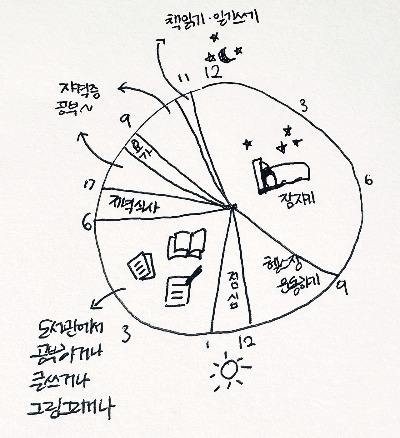 책읽기·일기쓰기
11
12
자격증
공부~
9
3
휴식
잠자기
6
7
저녁식사
6
헬스장
운동하기
점
심
9
3
1
12
도서관에서
공부하거나
글쓰거나
그림그리거나